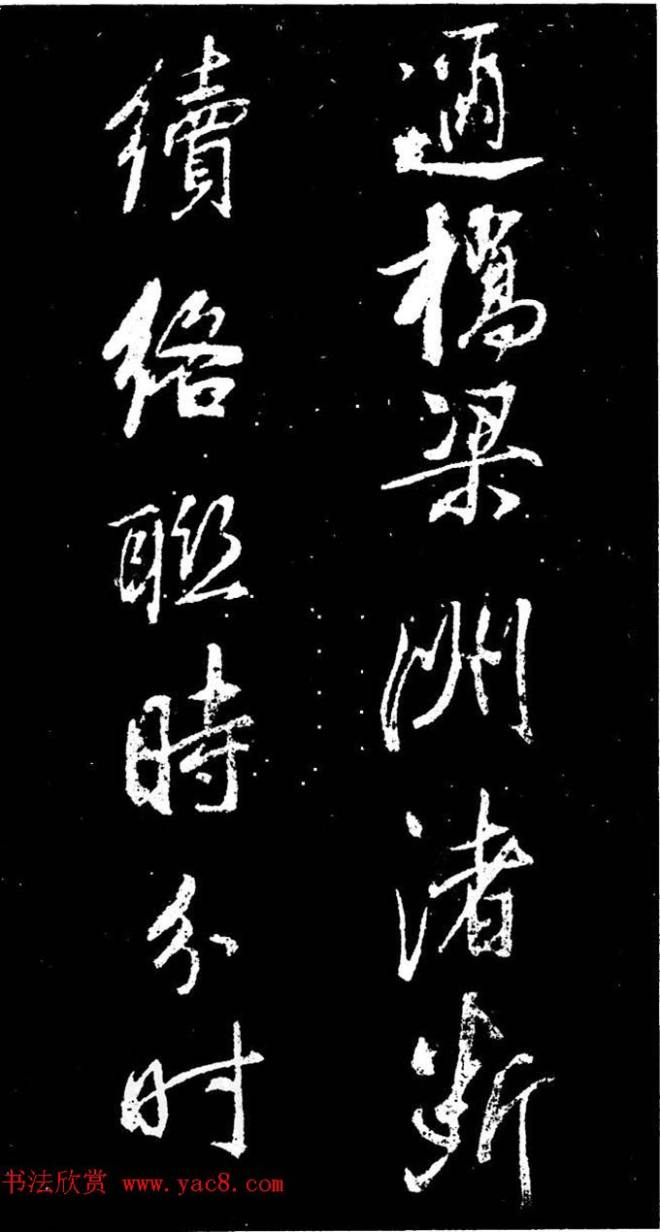 邇橋梁洲渚断
續絡聯時分时
书法欣赏 www.yac8.com